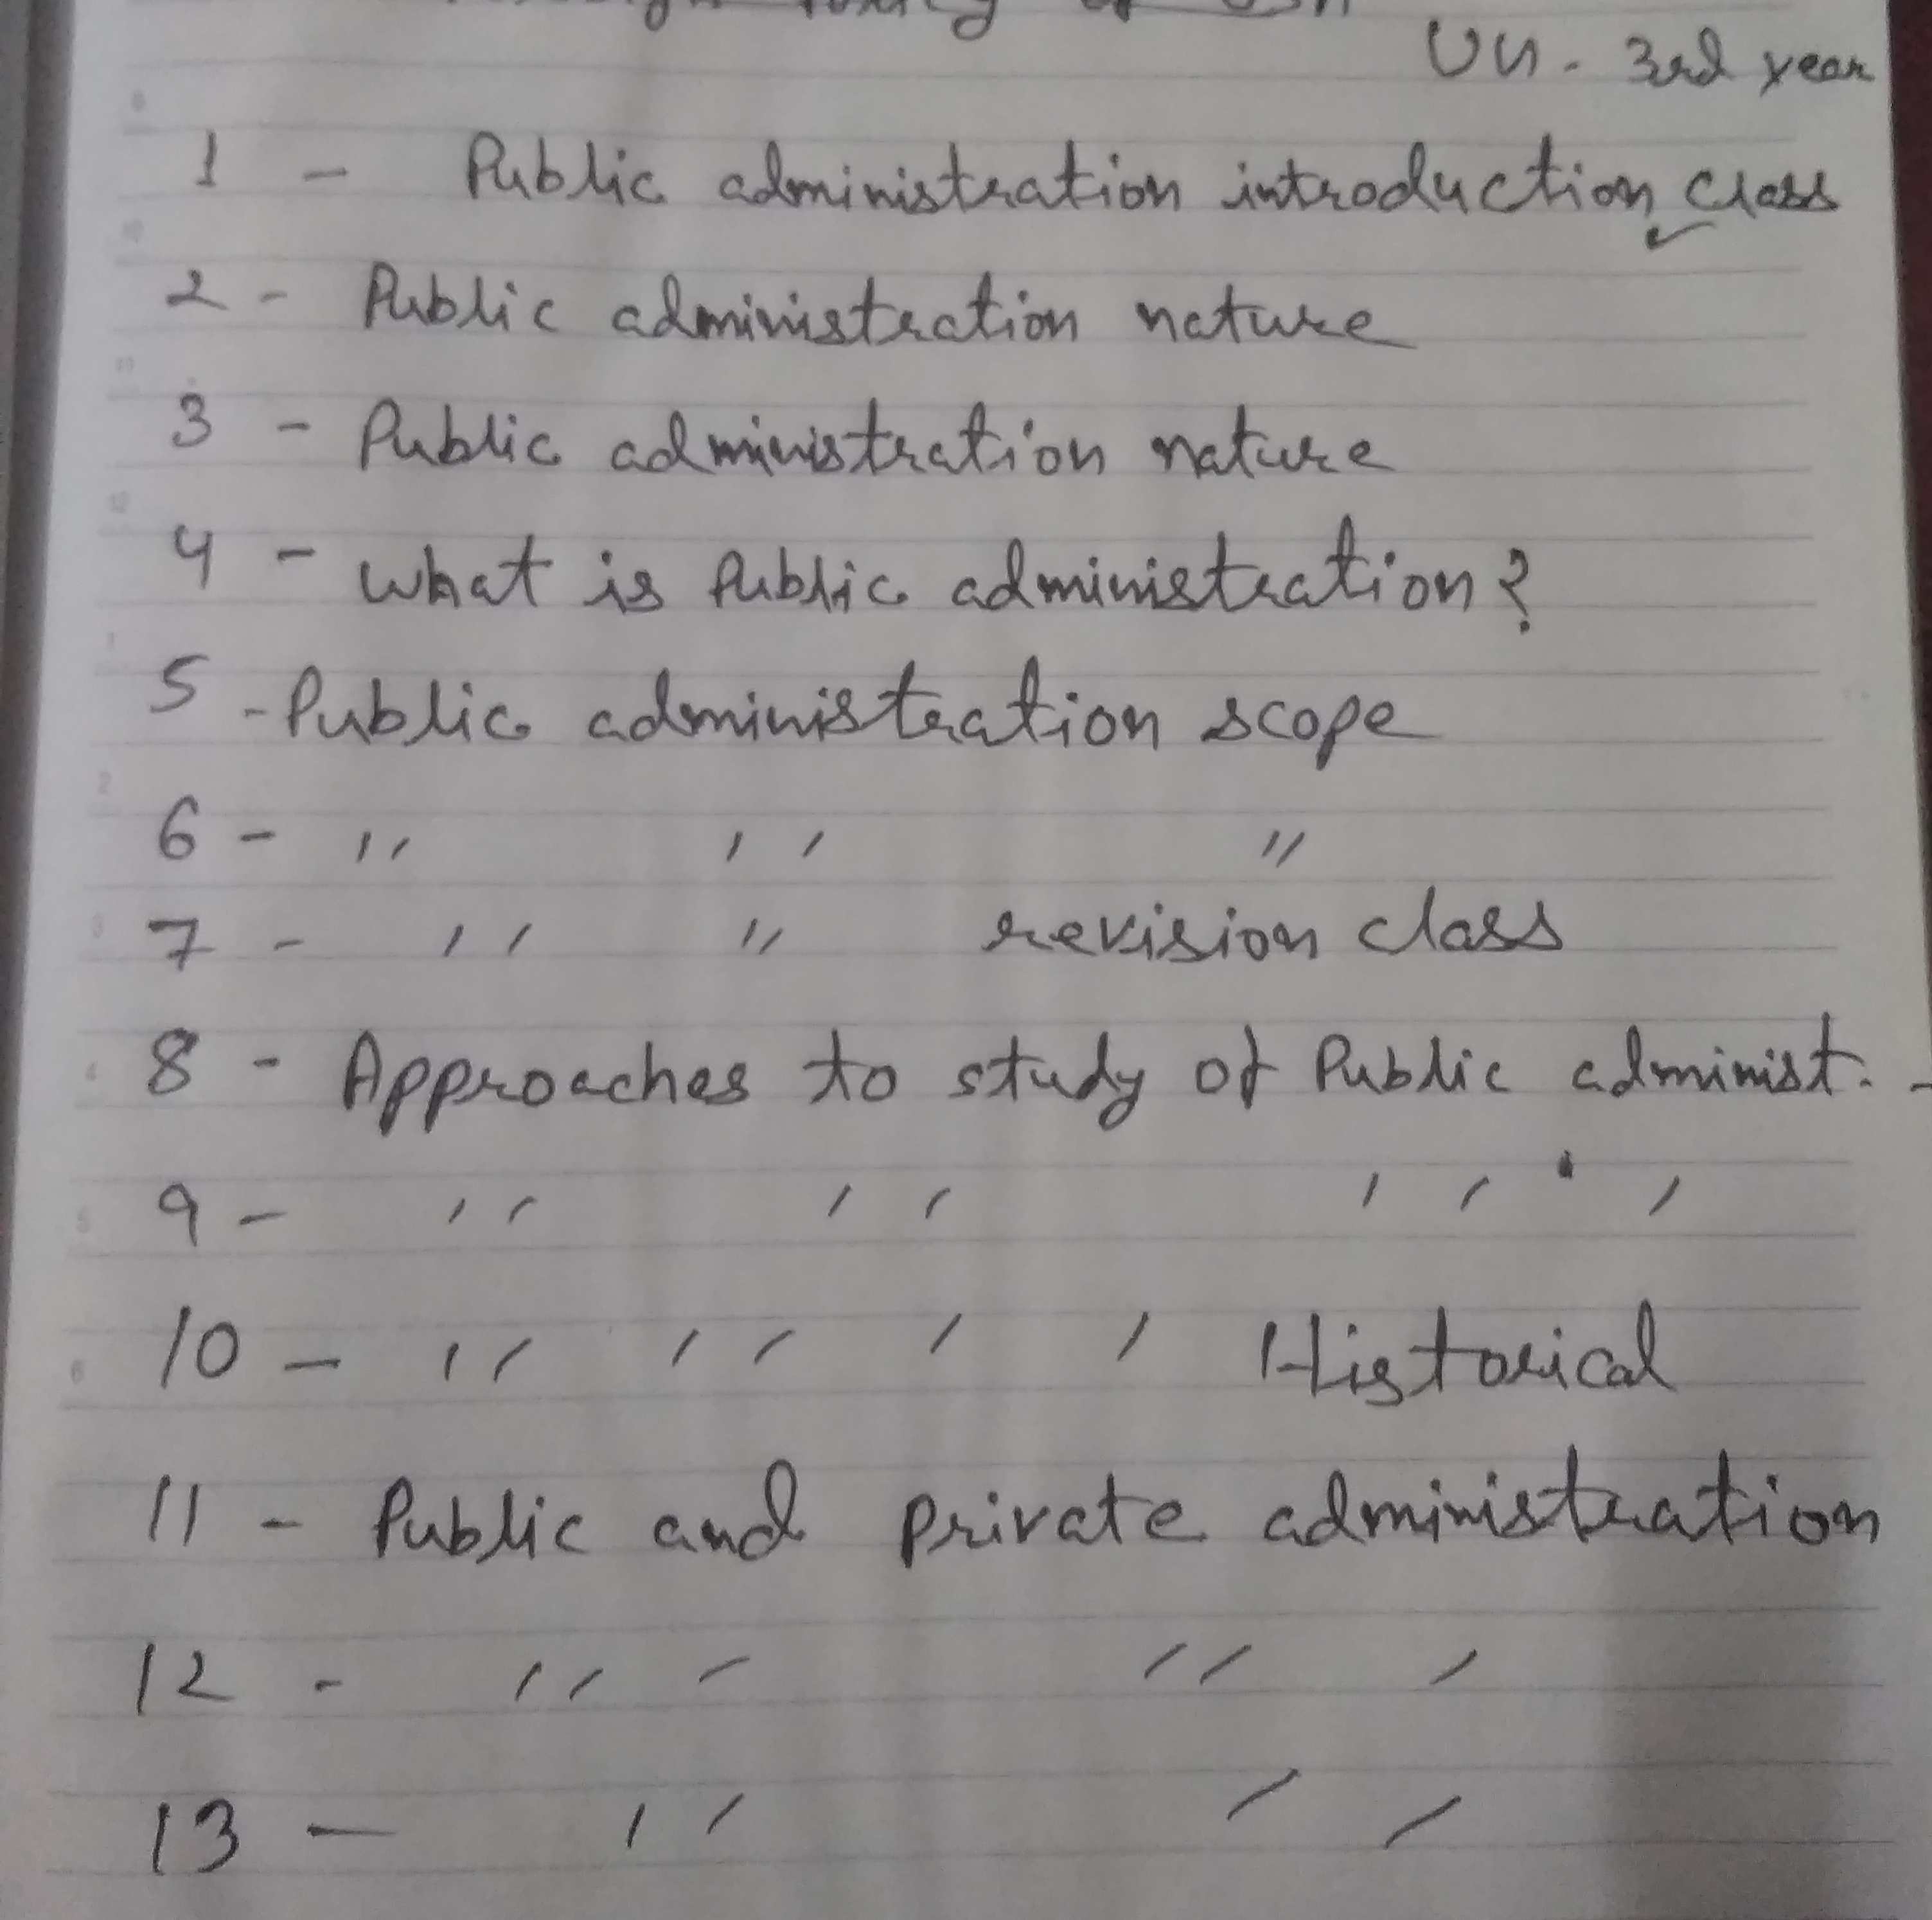 of
3rd year
1 - Public administration introduction class
2 - Public administration nature
3 - Public administration nature
4 - What is Public administration?
5 - Public administration scope
6 - " " "
7 - " " revision class
8 - Approaches to study of Public administ. -
9 - " " " "
10 - " " " " Historical
11 - Public and private administration
12 - " " " "
13 - " "